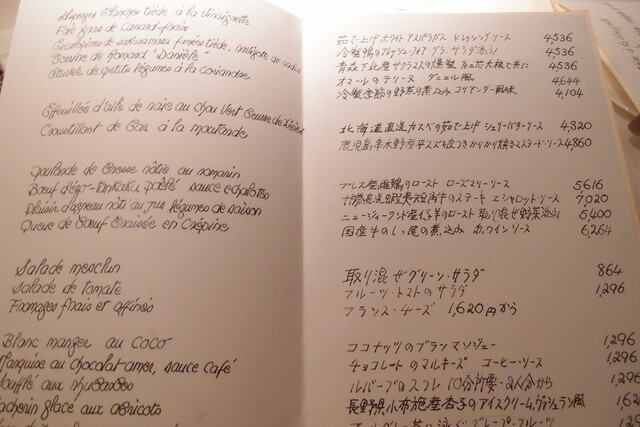 Asperges blanches tiède à la Vinaigrette
Foie gras de Canard frais
Escalopines de sakuramasu fumées tiède, navigote de radis
Terrine de homard "Danièle"
Etuvée de petits légumes à la coriandre
Effeuillée d'aile de raie au chou Vert Beurre de Xérès
Croustillant de Bar à la moutarde
Poularde de Bresse rôtie au romarin
Bœuf d'Ezo-Tankaku poêlé sauce echalotes
Plaisir d'agneau rôti au jus légumes de saison
Queue de Bœuf Braisée en Crépine
Salade mesclun
Salade de tomate
Fromages frais et affinés
Blanc manger au coco
Marquise au chocolat amer, sauce café
Soufflé aux rhubarbes
Vacherin glacé aux abricots
茹で上げホワイトアスパラガス ドレッシングソース 4,536
冷製鴨のフレッシュフォアグラ サラダ仕立 4,536
青森下北産サクラマスの燻製 紅芯大根と共に 4,536
オマールのテリーヌ ダニエル風 4,644
冷製季節の野菜の煮込み コリアンダー風味 4,104
北海道直送カスベの茹で上げ シェリーバターソース 4,320
鹿児島串木野産平スズキ皮つきかりかり焼きマスタードソース 4,860
ブレス産雌鶏のロースト ローズマリーソース 5,616
十勝直送蝦夷短角牛のステーキ エシャロットソース 7,020
ニュージーランド産仔羊のロースト 取り混ぜ野菜添え 5,400
国産牛のしっ尾の煮込み 赤ワインソース 6,264
取り混ぜグリーン・サラダ 864
フルーツ・トマトのサラダ 1,296
フランス・チーズ 1,620円から
ココナッツのブランマンジェー 1,296
チョコレートのマルキーズ コーヒー・ソース 1,296
ルバーブのスフレ 10分所要・2人分から 1,296
長野県小布施産杏子のアイスクリーム、ヴァシュラン風 1,62